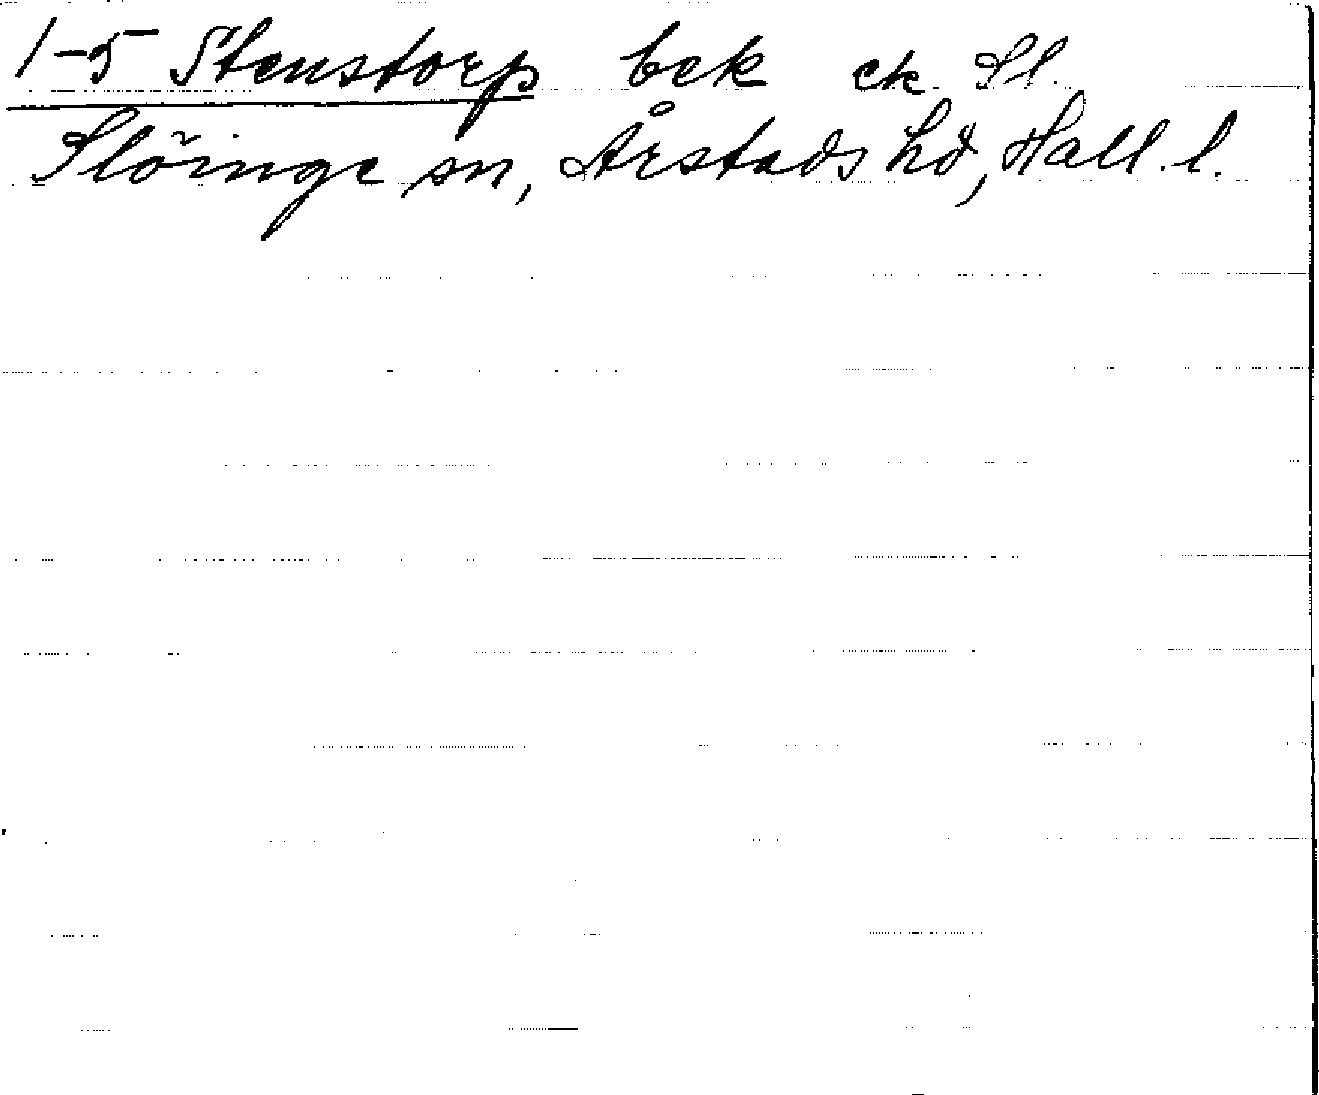 1-5 Stenstorp bek ek Sl.
Slöinge sn, Årstads hd, Hall. l.